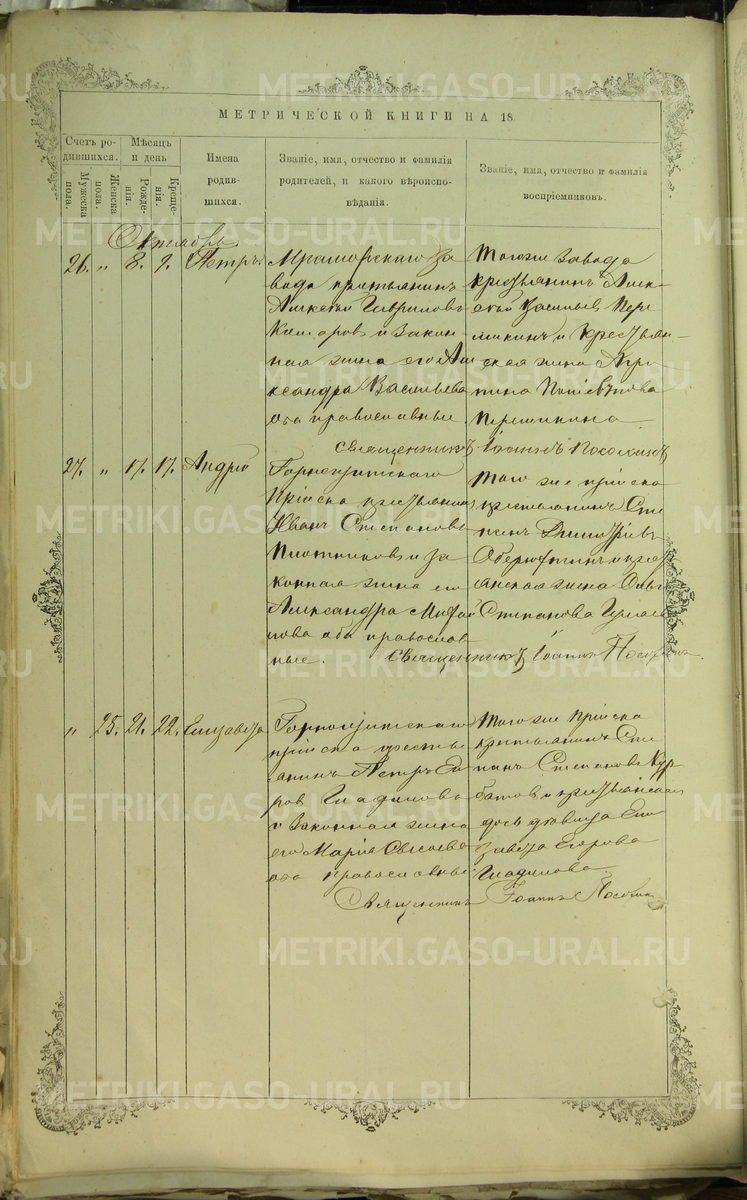 МЕТРИЧЕСКОЙ КНИГИ НА 18
Счетъ ро-
дившихся.
Мужеска
пола.
Женска
пола.
Мѣсяцъ
и день
Рожде-
нія.
Креще-
нія.
Имена
родив-
шихся.
Званіе, имя, отчество и фамилія
родителей, и какого вѣроиспо-
вѣданія.
Званіе, имя, отчество и фамилія
воспріемниковъ.
Октябрь
26. „ 8. 9. Петръ.
Мраморскаго За
вода крестьянинъ
Алексѣй Гавриловъ
Комаровъ и закон
ная жена его Але
ксандра Васильева
оба православные.
Тогоже завода
крестьянинъ Алек
сѣй Васильевъ
и крестьян-
ская жена
Священникъ Іоаннъ
27. „ 17. 17. Андрей
Горнощитскаго
Пріиска крестьянинъ
Иванъ Степановъ
Плотниковъ и за
конная жена его
Александра
оба православ
ные.
Того же пріиска
крестьянинъ Сте
панъ Димитріевъ
и крест
янская жена
Степанова
Священникъ Іоаннъ
„ 25. 21. 22. Елизавета
Горнощитскаго
пріиска кресть
янинъ Петръ Его
ровъ Гладиловъ
и законная жена
его Марія
оба православные
Того же Пріиска
крестьянинъ Сте
панъ Степановъ Кур
батовъ и крестьянская
дочь дѣвица Ели
завета Егорова
Гладилова
Священникъ Іоаннъ
METRIKI.GASO-URAL.RU